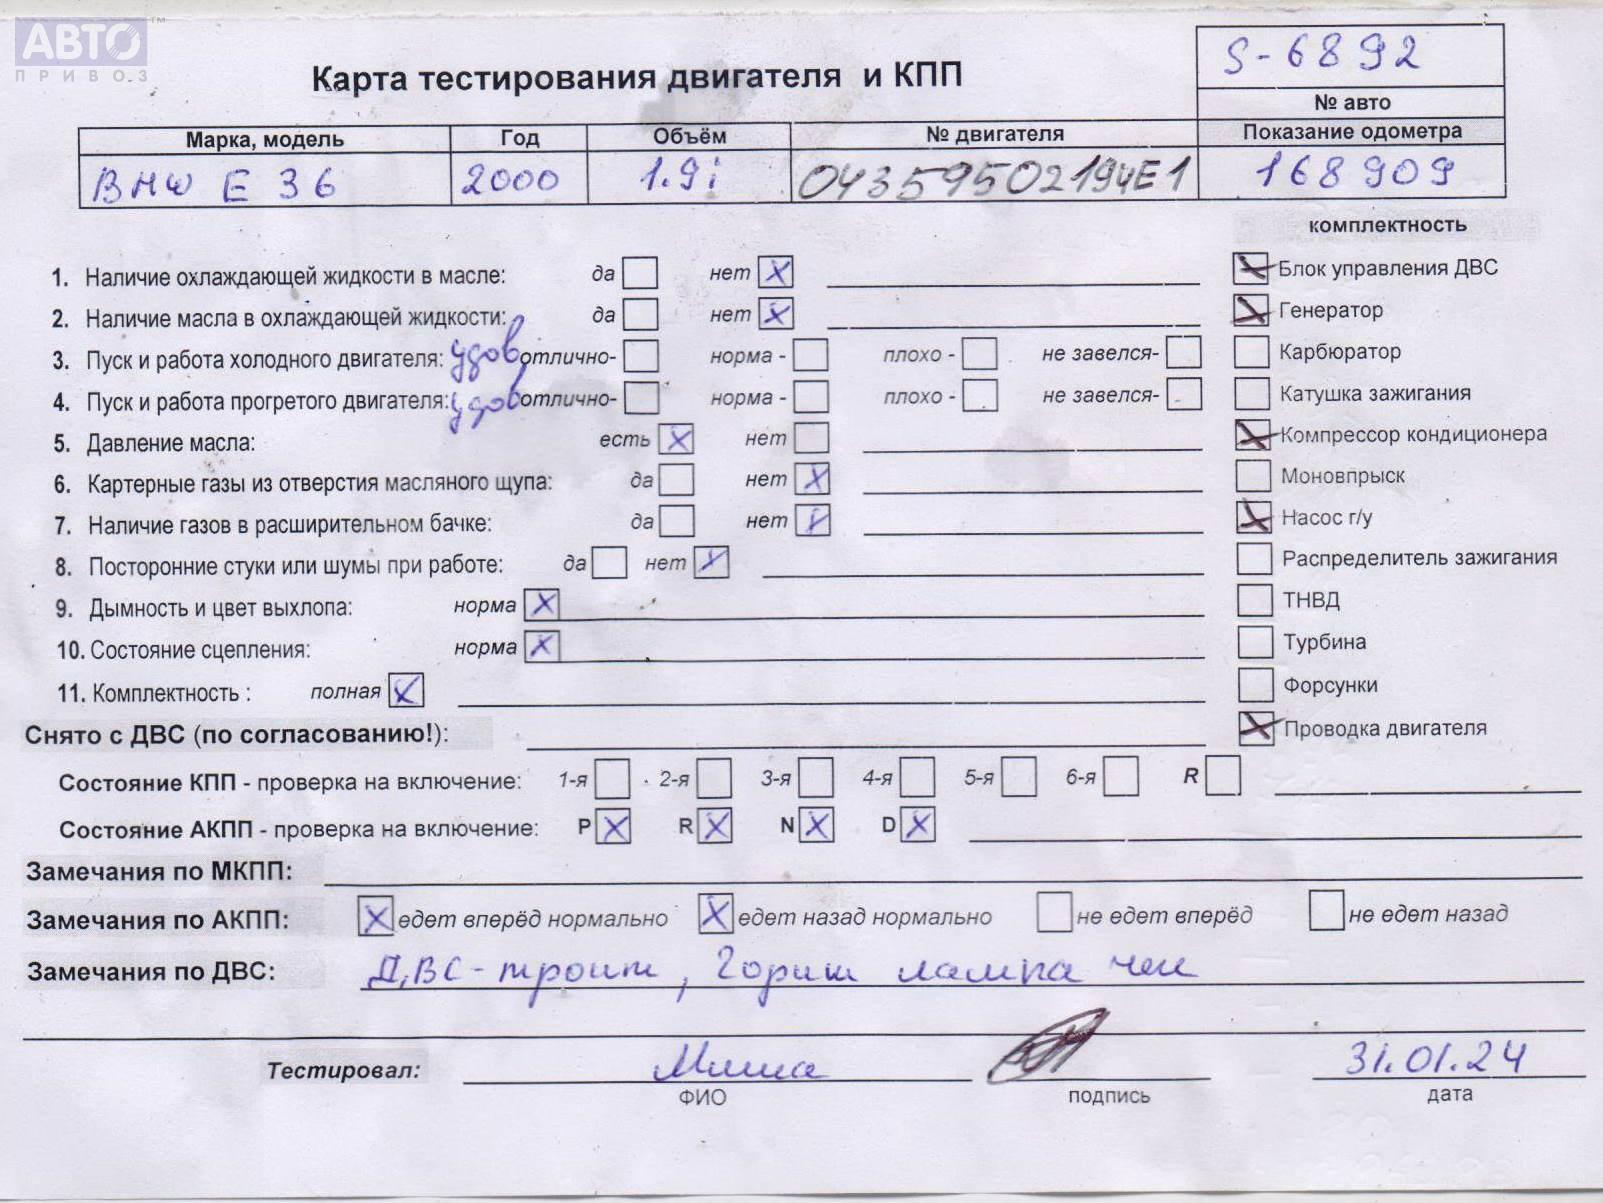 АВТО™
ПРИВОЗ
Карта тестирования двигателя и КПП
S-6892
№ авто
Марка, модель Год Объём № двигателя Показание одометра
BMW E 36 2000 1.9i 04359502194E1 168909
комплектность
1. Наличие охлаждающей жидкости в масле: да нет X Блок управления ДВС
2. Наличие масла в охлаждающей жидкости: да нет X Генератор
3. Пуск и работа холодного двигателя: удов отлично- норма - плохо - не завелся- Карбюратор
4. Пуск и работа прогретого двигателя: удов отлично- норма - плохо - не завелся- Катушка зажигания
5. Давление масла: есть X нет Компрессор кондиционера
6. Картерные газы из отверстия масляного щупа: да нет X Моновпрыск
7. Наличие газов в расширительном бачке: да нет X Насос г/у
8. Посторонние стуки или шумы при работе: да нет X Распределитель зажигания
9. Дымность и цвет выхлопа: норма X ТНВД
10. Состояние сцепления: норма X Турбина
11. Комплектность : полная X Форсунки
Снято с ДВС (по согласованию!): Проводка двигателя
Состояние КПП - проверка на включение: 1-я 2-я 3-я 4-я 5-я 6-я R
Состояние АКПП - проверка на включение: P X R X N X D X
Замечания по МКПП:
Замечания по АКПП: X едет вперёд нормально X едет назад нормально не едет вперёд не едет назад
Замечания по ДВС: ДВС - троит, горит лампа чек
Тестировал: Миша 31.01.24
ФИО подпись дата